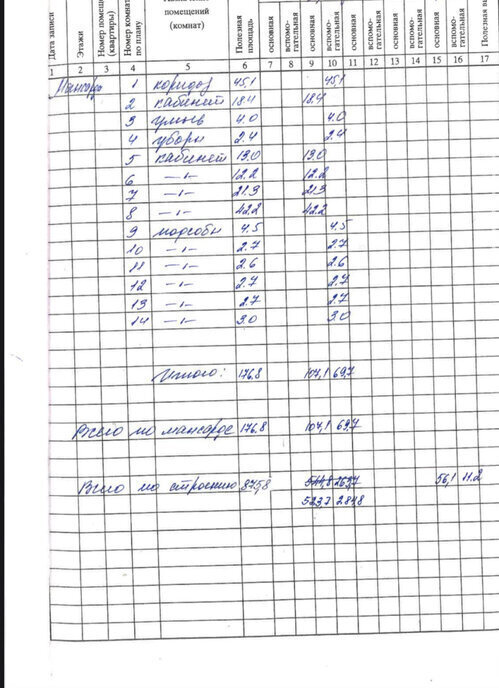 Дата записи
Этажи
Номер помещ
(квартиры)
Номер комнат
по плану
помещений
(комнат)
Полезная
площадь
основная
вспомо-
гательная
основная
вспомо-
гательная
основная
вспомо-
гательная
основная
вспомо-
гательная
основная
вспомо-
гательная
Полезная в
1 2 3 4 5 6 7 8 9 10 11 12 13 14 15 16 17
Мансарда 1 коридор 45,1 45,1
2 кабинет 18.4 18.4
3 умыв 4.0 4.0
4 уборн 2.4 2.4
5 кабинет 13.0 13.0
6 —〃— 12.2 12.2
7 —〃— 21.3 21.3
8 —〃— 42.2 42.2
9 подсобн 4.5 4.5
10 —〃— 2.7 2.7
11 —〃— 2.6 2.6
12 —〃— 2.7 2.7
13 —〃— 2.7 2.7
14 —〃— 3.0 3.0
Итого: 176.8 107,1 69,7
Всего по мансарде 176,8 107,1 69,7
Всего по строению 875,8 56,1 11.2
523,7 284,8